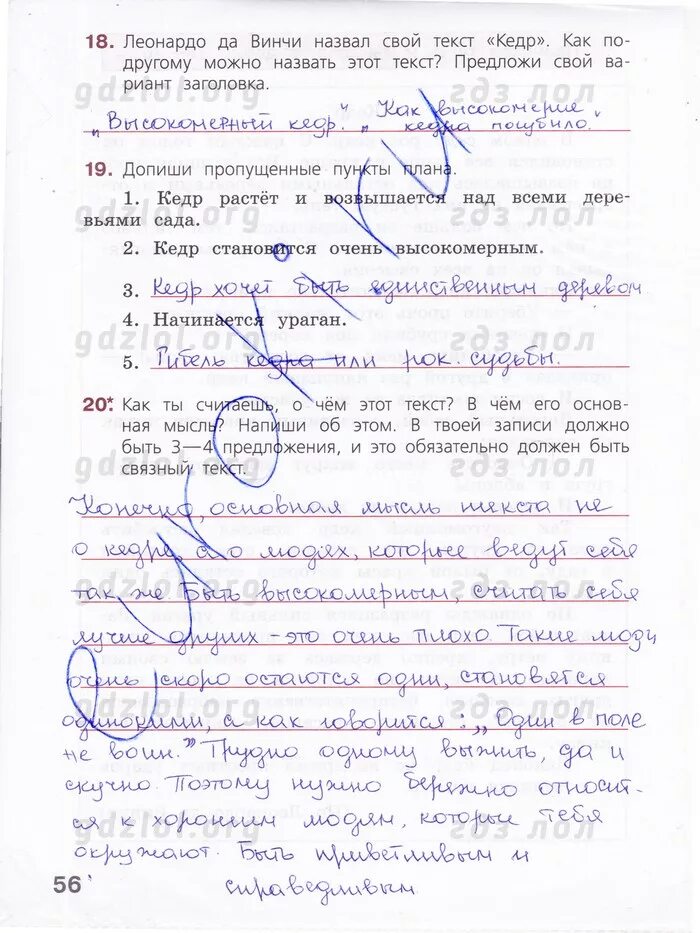 18. Леонардо да Винчи назвал свой текст «Кедр». Как по-
другому можно назвать этот текст? Предложи свой ва-
gdzlol.org гдз лол
риант заголовка.
„Высокомерный кедр." „Как высокомерие
кедра погубило."
19. Допиши пропущенные пункты плана.
gdzlol.org гдз лол
1. Кедр растёт и возвышается над всеми дере-
вьями сада.
gdzlol.org гдз лол
2. Кедр становится очень высокомерным.
3. Кедр хочет быть единственным деревом
4. Начинается ураган.
gdzlol.org гдз лол
5. Гибель кедра или рок судьбы.
20*. Как ты считаешь, о чём этот текст? В чём его основ-
ная мысль? Напиши об этом. В твоей записи должно
быть 3—4 предложения, и это обязательно должен быть
gdzlol.org гдз лол
связный текст.
Конечно, основная мысль текста не
о кедре, а о людях, которые ведут себя
gdzlol.org гдз лол
так же. Быть высокомерным, считать себя
лучше других - это очень плохо. Такие люди
очень скоро остаются одни, становятся
gdzlol.org гдз лол
одинокими, а как говорится: „Один в поле
не воин." Трудно одному выжить, да и
скучно. Поэтому нужно бережно относит-
ся к хорошим людям, которые тебя
gdzlol.org гдз лол
окружают. Быть приветливым и
справедливым.
56